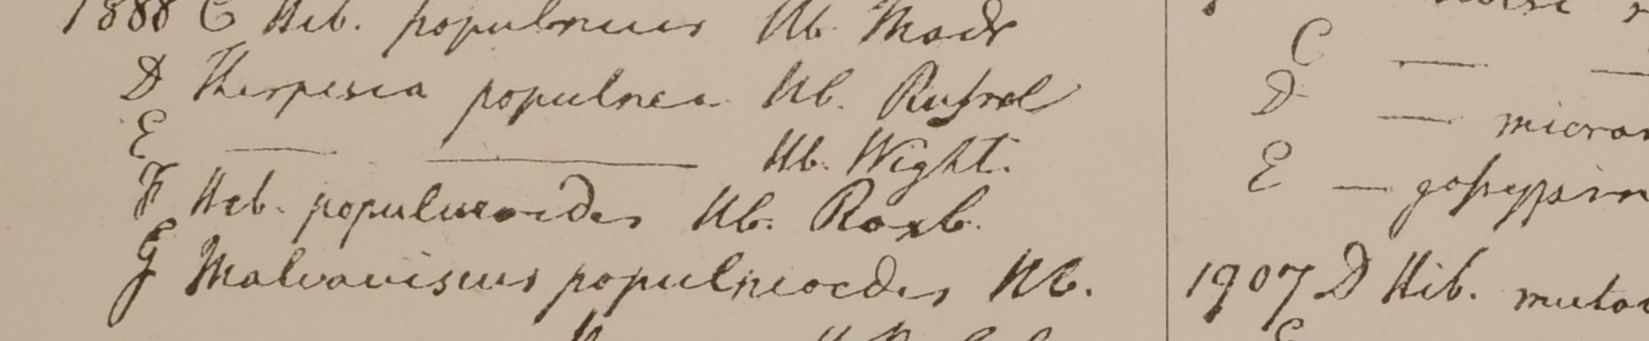 1888 C Hib. populneus Hb. Madr
D Thespesia populnea Hb. Russel
E — — Hb. Wight.
F Hib. populneoides Hb. Roxb.
G Malvaviscus populneoides Hb.
C — —
D —
E —
1907 D Hib.